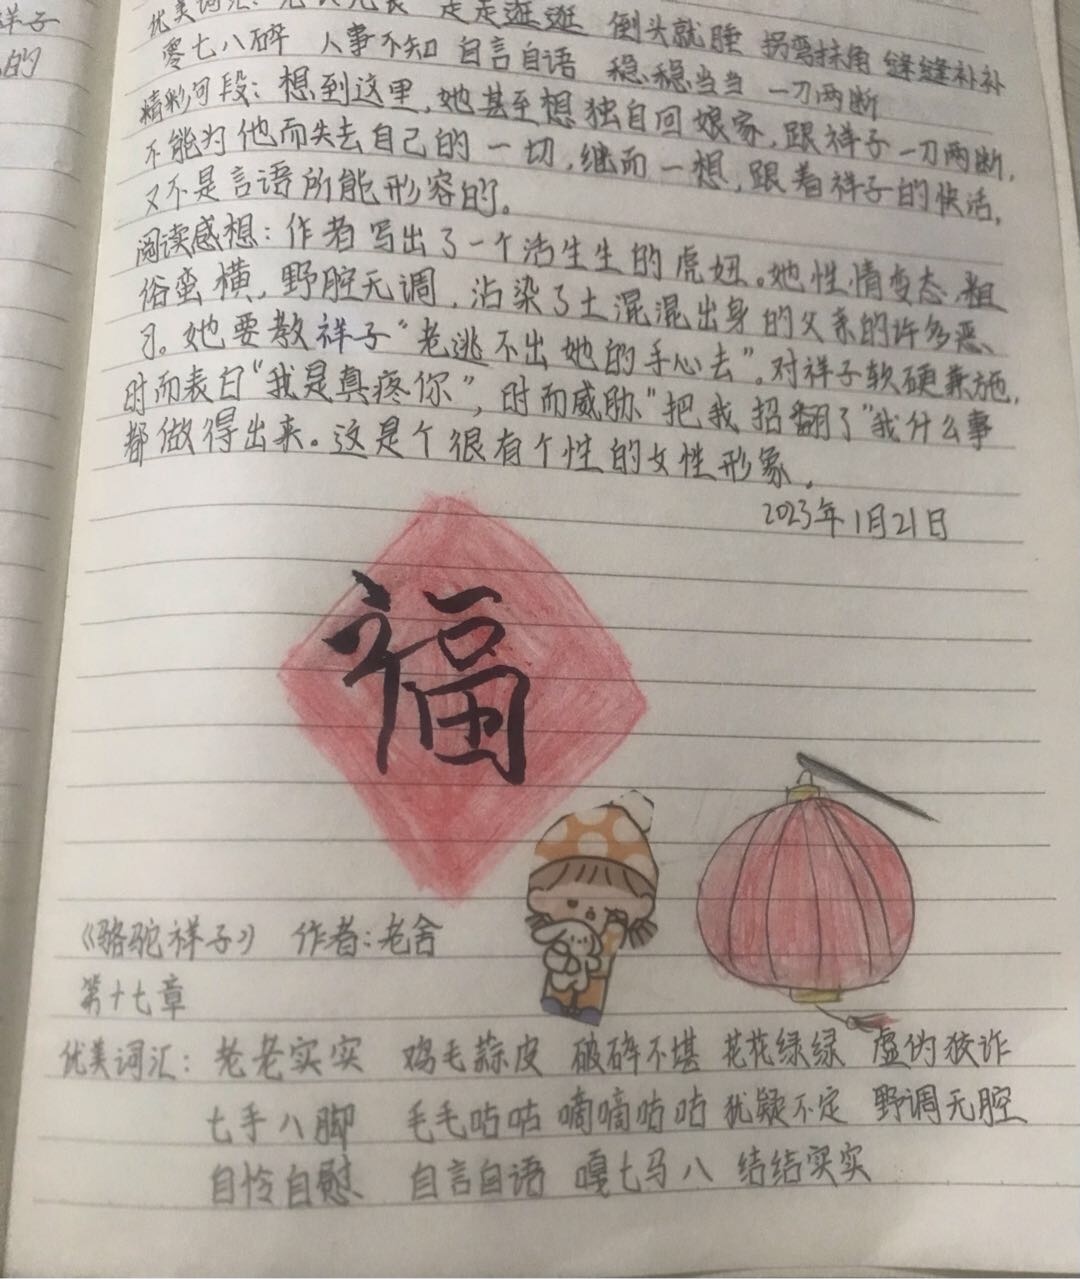 祥子
的
优美词汇: 走走逛逛 倒头就睡 拐弯抹角 缝缝补补
零七八碎 人事不知 自言自语 稳稳当当 一刀两断
精彩句段: 想到这里,她甚至想独自回娘家,跟祥子一刀两断,
不能为他而失去自己的一切,继而一想,跟着祥子的快活,
又不是言语所能形容的。
阅读感想: 作者写出了一个活生生的虎妞。她性情变态,粗
俗蛮横,野腔无调,沾染了土混混出身的父亲的许多恶
习。她要教祥子“老逃不出她的手心去”。对祥子软硬兼施,
时而表白“我是真疼你”,时而威胁“把我招翻了”我什么事
都做得出来。这是个很有个性的女性形象。
2023年1月21日
福
《骆驼祥子》 作者:老舍
第十七章
优美词汇: 老老实实 鸡毛蒜皮 破碎不堪 花花绿绿 虚伪狡诈
七手八脚 毛毛咕咕 嘀嘀咕咕 犹疑不定 野调无腔
自怜自慰 自言自语 嘎七马八 结结实实